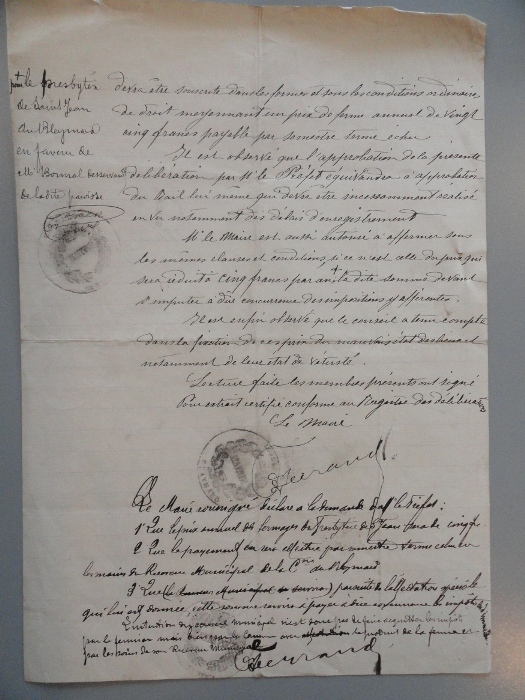 + le presbytère
de Saint Jean
du Bleymard
en faveur de
Mr Bonnal desservant
de ladite paroisse
devra être souscrite dans les formes et sous les conditions ordinaires
de droit moyennant un prix de ferme annuel de vingt
cinq francs payable par semestre terme echu
Il est observé que l'approbation de la présente
délibération par Mr le Préfet équivaudra à l'approbation
du Bail lui même qui devra être incessamment réalisé
en vu notamment des delais d'enregistrement
Mr le Maire est aussi autorisé à affermer sous
les mêmes clauses et conditions, si ce n'est celle du prix qui
sera réduit à cinq francs par an + la dite somme devant
s'imputer à due concurrence des impositions y afférentes.
Il est enfin observé que le conseil a tenu compte
dans la fixation de ces prix du mauvais état des lieux et
notamment de leur état de vétusté.
Lecture faite les membres présents ont signé
Pour extrait certifié conforme au Registre des délibérations
Le Maire
Le Maire soussigné déclare à la demande de M le Préfet:
1° Que le prix annuel de fermage du Presbytère de St Jean sera de cinq f.
2° Que le payement en sera effectué par semestre terme echu en
les mains du Receveur Municipal de la Cne de Bleymard
3° Que parsuite de l'affectation spéciale
qui lui est donnée, cette somme servira à payer à due concurrence les impôts
L'intention du conseil municipal n'est pas de faire acquitter les impôts
par le fermier mais bien par la commune avec le produit de la ferme et
par les soins de son Receveur Municipal